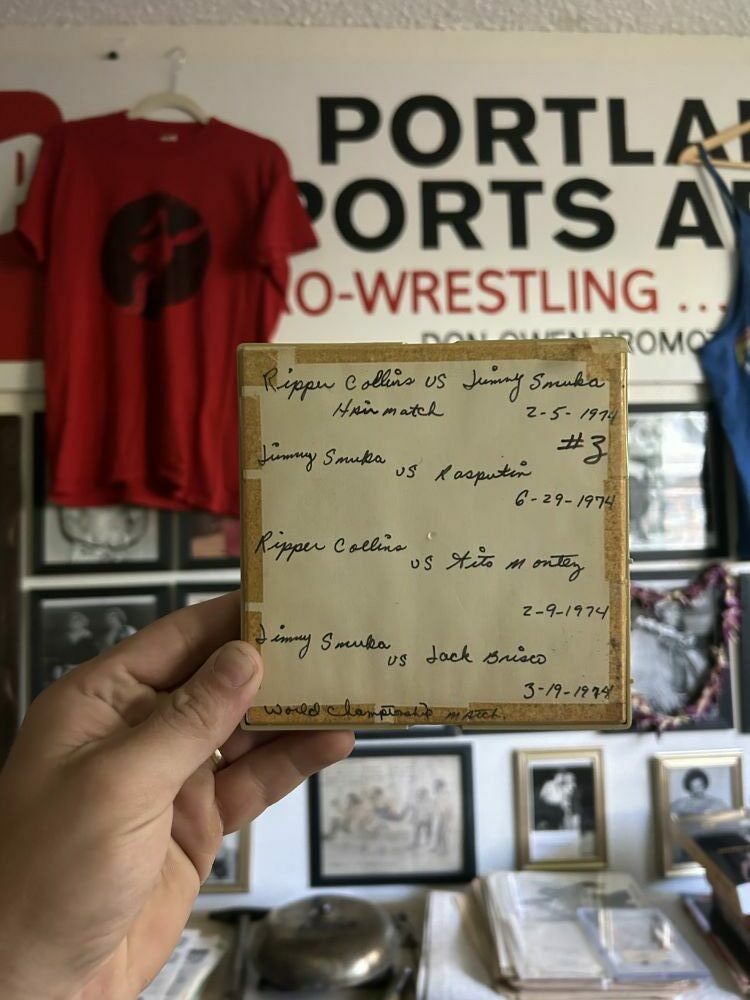 PORTLA
PORTS A
O-WRESTLING ...
DON OWEN PROMOT
Ripper Collins VS Jimmy Snuka
Hair match 2-5-1974
#3
Jimmy Snuka
VS Rasputin
6-29-1974
Ripper Collins
VS Tito Montez
2-9-1974
Jimmy Snuka
VS Jack Brisco
3-19-1974
World Championship match.